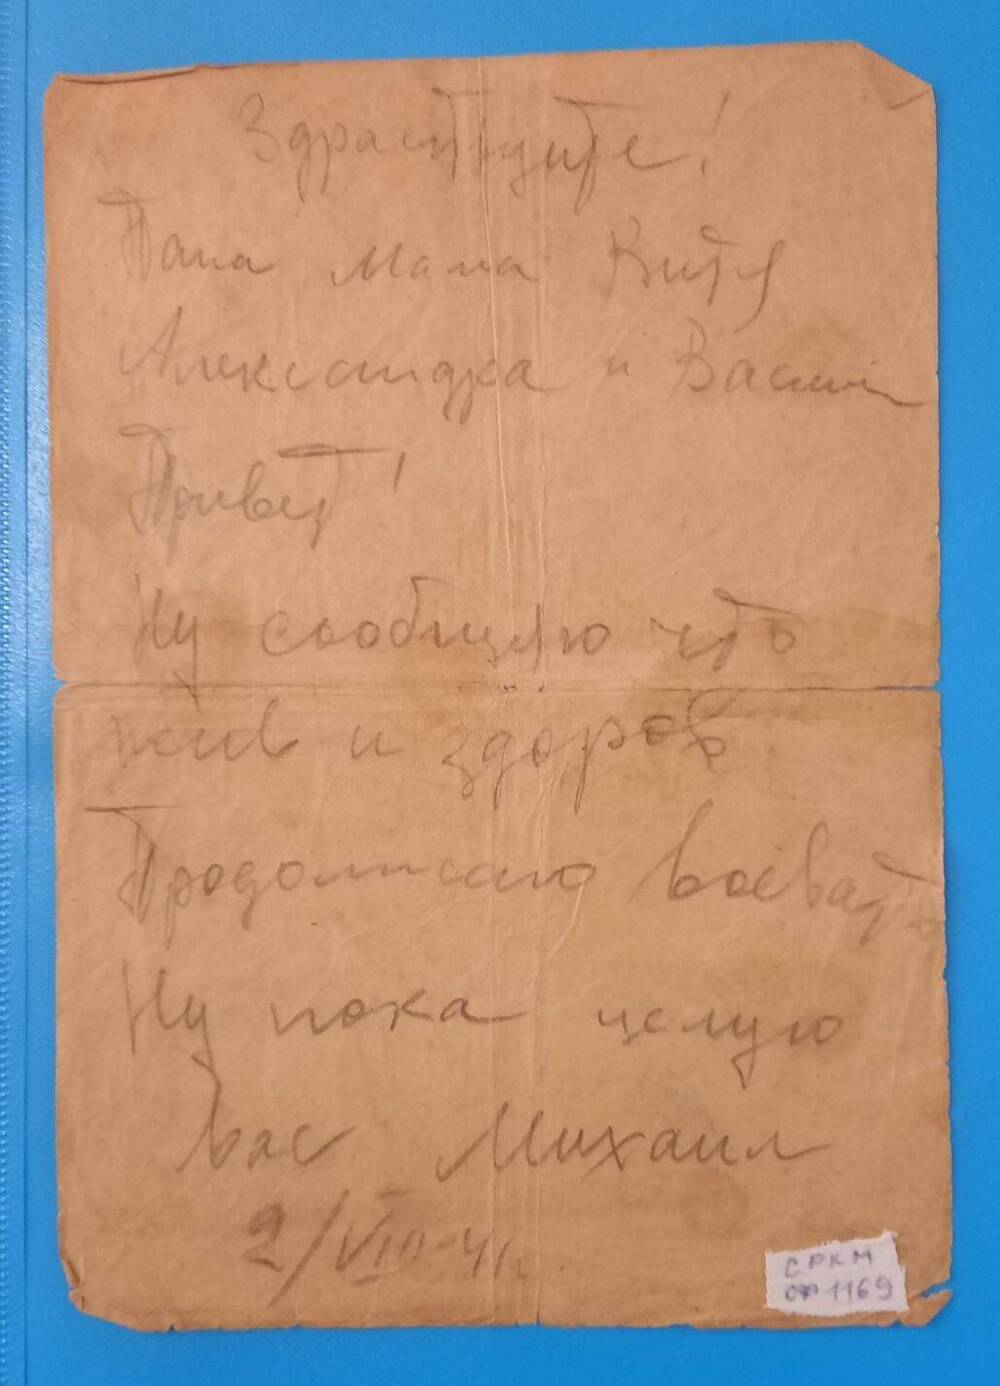 Здраствуите!
Папа мама Витя
Александра и Васили
Привет!
Ну сообщяю что
жив и здоров
Продолжаю воевать
Ну пока целую
вас Михаил
2/VIII-41г.
СРКМ
ОФ 1169